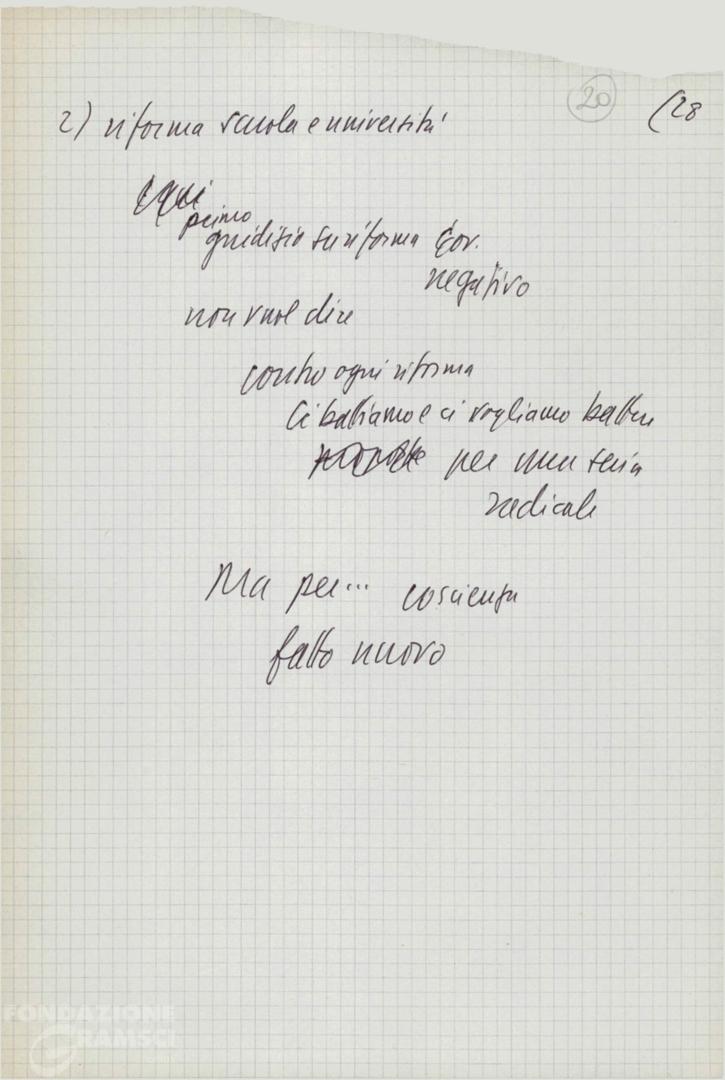 20 (28
2) riforma scuola e università
primo
giudizio su riforma Gov.
negativo
non vuol dire
contro ogni riforma
Ci battiamo e ci vogliamo battere
per una seria
radicale
Ma per... coscienza
fatto nuovo
FONDAZIONE
GRAMSCI